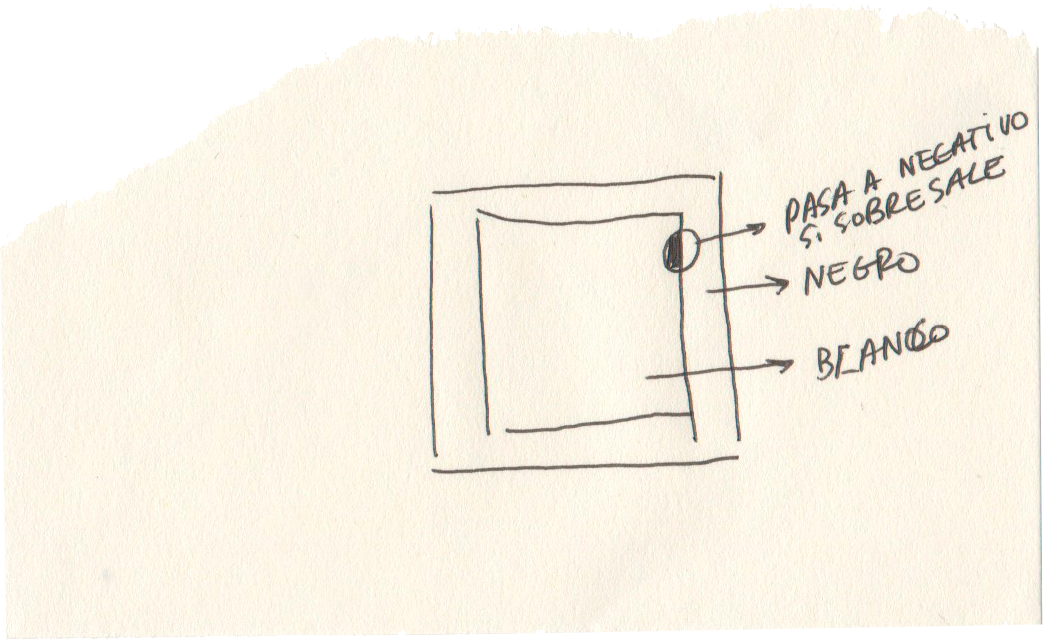 PASA A NEGATIVO
Si SOBRESALE
NEGRO
BLANCO